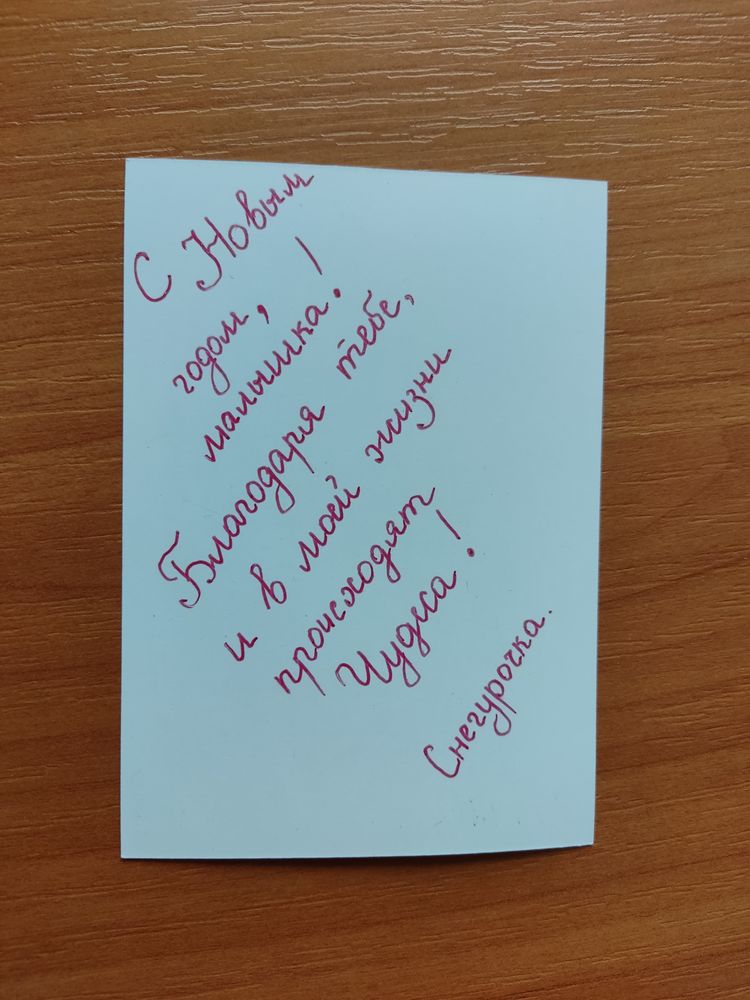 С Новым
годом,
малышка!
Благодаря тебе,
и в моей жизни
происходят
Чудеса!
Снегурочка.